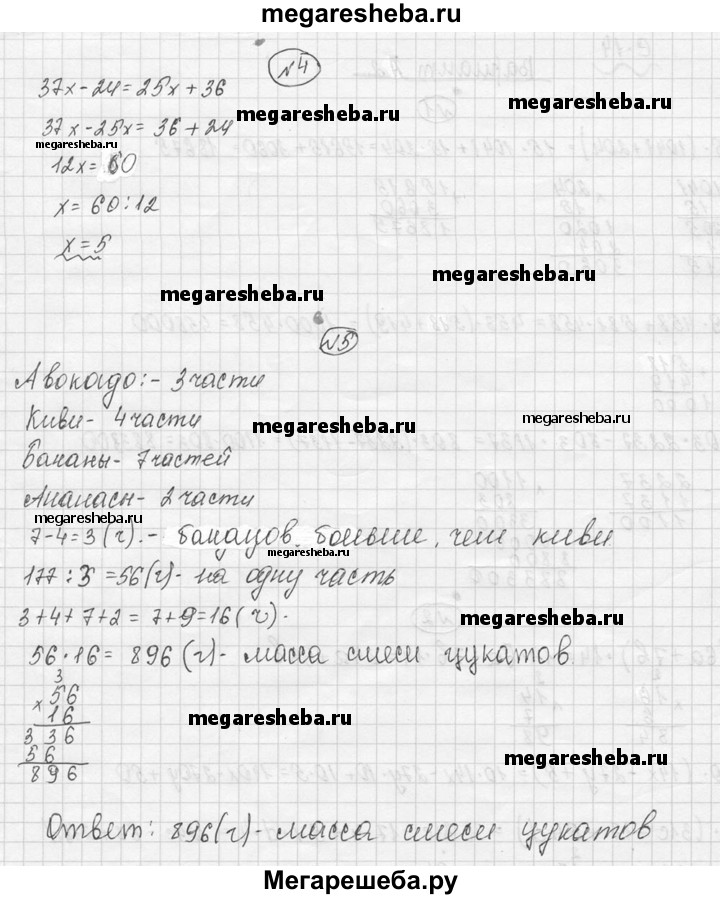 megaresheba.ru
№4
37x-24=25x+36
megaresheba.ru
megaresheba.ru
37x-25x=36+24
megaresheba.ru
12x=60
x=60:12
x=5
megaresheba.ru
№5
Авокадо:- 3 части
Киви- 4 части
megaresheba.ru
megaresheba.ru
Бананы- 7 частей
Ананасы- 2 части
megaresheba.ru
7-4=3(ч).- бананов больше, чем киви
megaresheba.ru
177:3=56(г)- на одну часть
3+4+7+2=7+9=16(ч).
megaresheba.ru
56·16=896(г)- масса смеси цукатов
3
×56
16
336
56
896
megaresheba.ru
megaresheba.ru
Ответ: 896(г)- масса смеси цукатов
Мегарешеба.ру